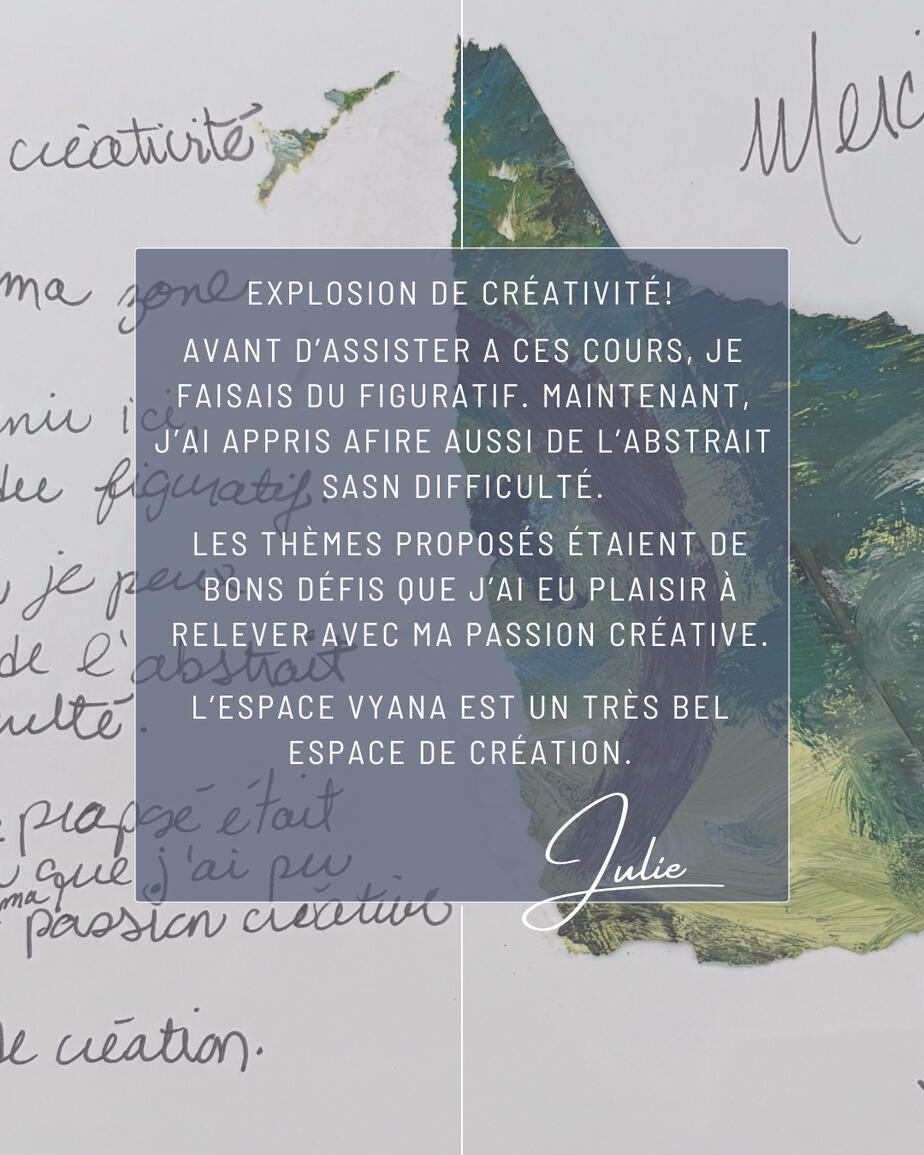 créativité
Merc
ma zone
EXPLOSION DE CRÉATIVITÉ!
AVANT D'ASSISTER A CES COURS, JE
FAISAIS DU FIGURATIF. MAINTENANT,
J'AI APPRIS AFIRE AUSSI DE L'ABSTRAIT
SASN DIFFICULTÉ.
LES THÈMES PROPOSÉS ÉTAIENT DE
BONS DÉFIS QUE J'AI EU PLAISIR À
RELEVER AVEC MA PASSION CRÉATIVE.
L'ESPACE VYANA EST UN TRÈS BEL
ESPACE DE CRÉATION.
Julie
ici,
figuratif.
je peux
de l'abstrait
culté.
proposé était
que j'ai pu
ma
passion créative
de création.